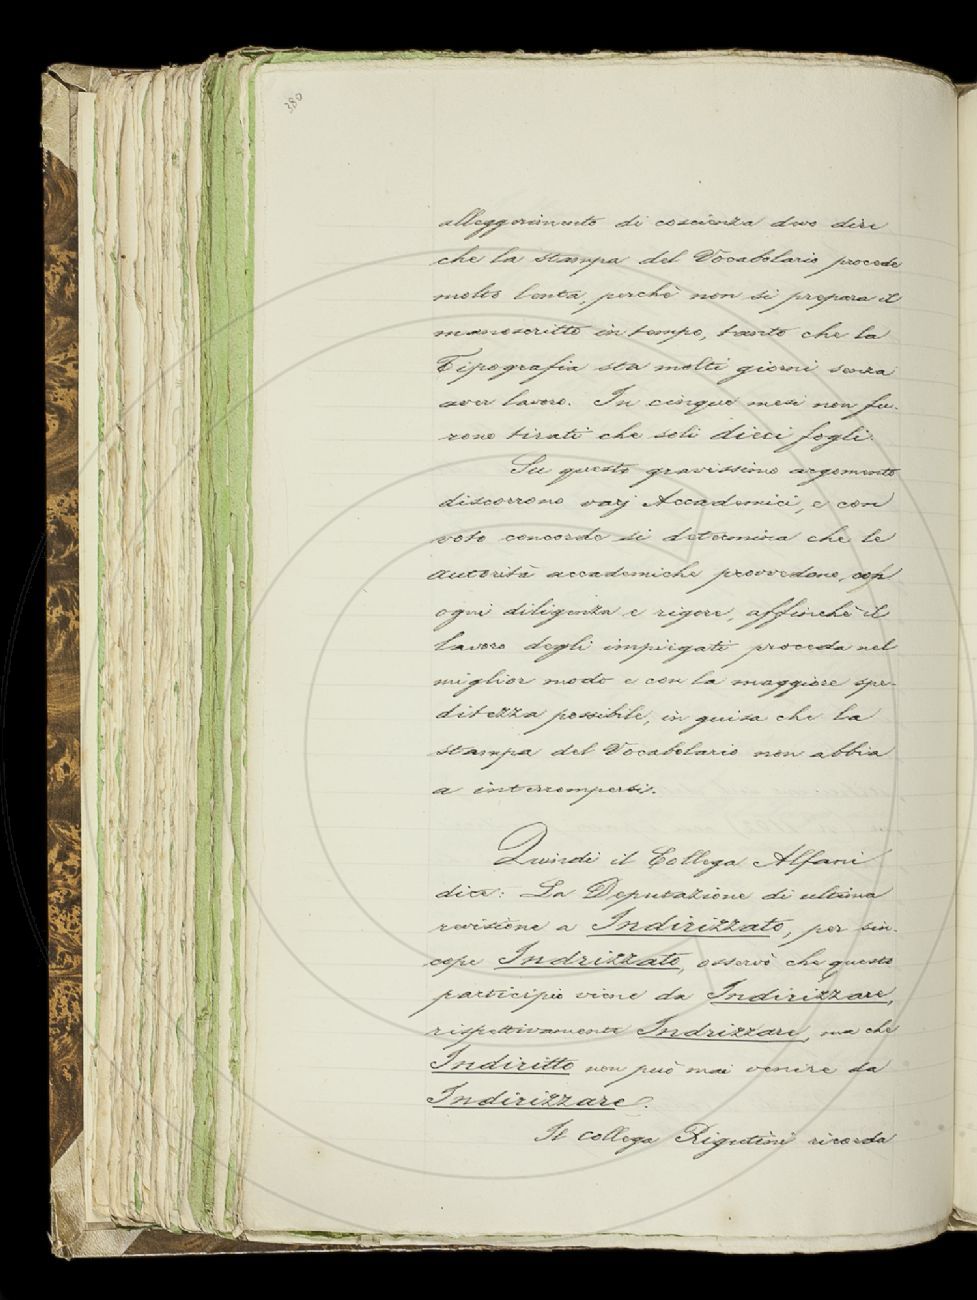 380
alleggerimento di coscienza devo dire
che la stampa del Vocabolario procede
molto lenta, perchè non si prepara il
manoscritto in tempo, tanto che la
Tipografia sta molti giorni senza
aver lavoro. In cinque mesi non fu-
rono tirati che soli dieci fogli.
Su questo gravissimo argomento
discorrono varj Accademici, e con
voto concorde si determina che le
autorità accademiche provvedano, con
ogni diligenza e rigore, affinchè il
lavoro degli impiegati proceda nel
miglior modo e con la maggiore spe-
ditezza possibile, in guisa che la
stampa del Vocabolario non abbia
a interrompersi.
Quindi il Collega Alfani
dice: La Deputazione di ultima
revisione a Indirizzato, per sin-
cope Indrizzato, osservò che questo
participio viene da Indirizzare,
rispettivamente Indrizzare, ma che
Indiritto non può mai venire da
Indirizzare.
Il collega Rigutini ricorda